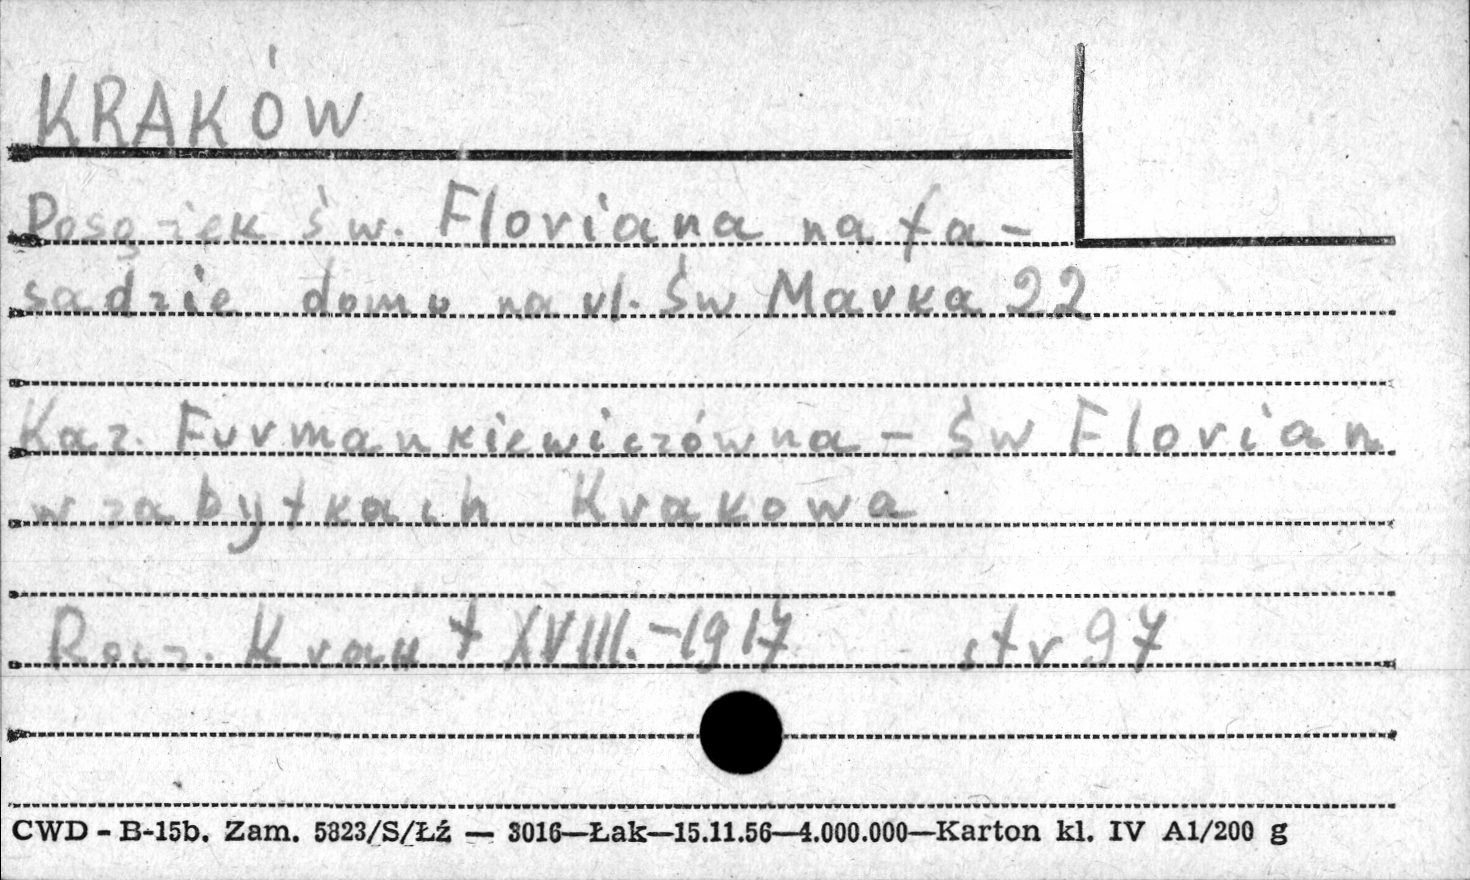 KRAKÓW
Posążek św. Floriana na fa-
sadzie domu na ul. Św Marka 22
Kaz. Furmankiewiczówna - Św Florian
w zabytkach Krakowa
Rocz. Krak t XVIII. - 1917 str 97
CWD - B-15b. Zam. 5823/S/Łź — 3016—Łak—15.11.56—4.000.000—Karton kl. IV A1/200 g